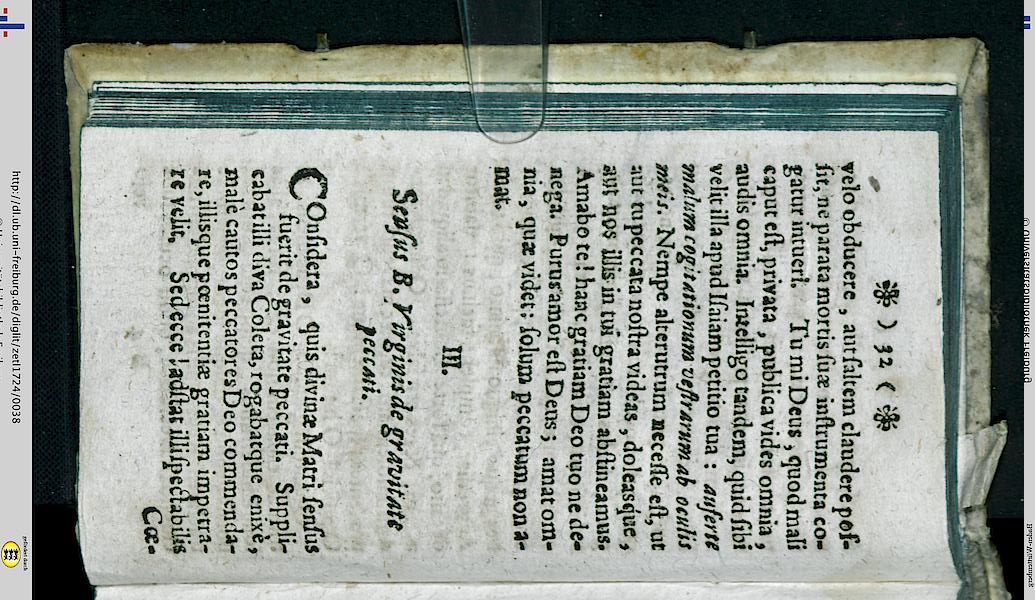 ❧ ) 32 ( ❧
velo obducere, aut saltem claudere pos-
sit, ne parata mortis suæ instrumenta co-
gatur intueri. Tu mi Deus, quod mali
caput est, privata, publica vides omnia,
audis omnia. Intelligo tandem, quid sibi
velit illa apud Isaiam petitio tua: auferte
malum cogitationum vestrarum ab oculis
meis. Nempe alterutrum necesse est, ut
aut tu peccata nostra videas, doleasque,
aut nos illis in tui gratiam abstineamus.
Amabo te! hanc gratiam Deo tuo ne de-
nega. Purus amor est Deus; amat om-
nia, quæ videt; solum peccatum non a-
mat.
III.
Sensus B. Virginis de gravitate
peccati.
COnsidera, quis divinæ Matri sensus
fuerit de gravitate peccati. Suppli-
cabat illi diva Coleta, rogabatque enixè,
malè cautos peccatores Deo commenda-
re, illisque pœnitentiæ gratiam impetra-
re velit. Sed ecce! adstat illi spectabilis
Cœ-
http://dl.ub.uni-freiburg.de/diglit/zetl1724/0038
© Universitätsbibliothek Freiburg
gefördert durch